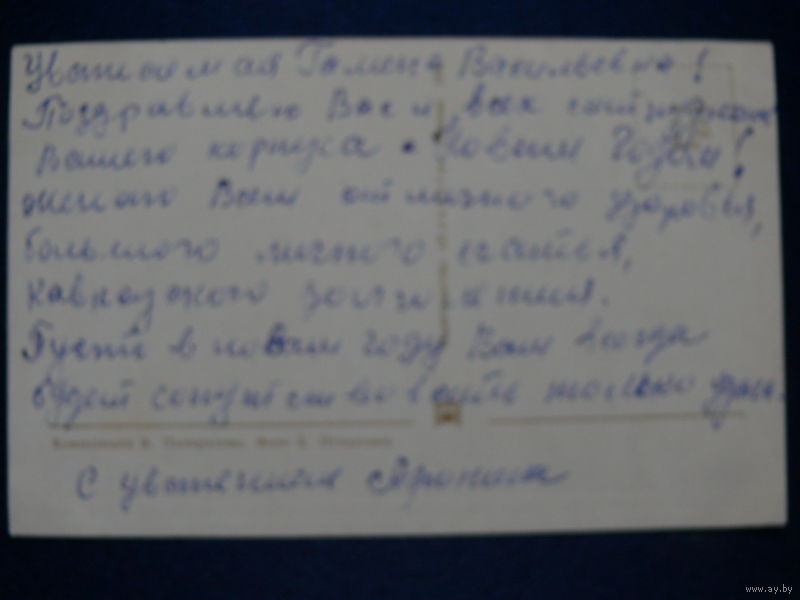 Уважаемая Галина Васильевна!
Поздравляю Вас и всех сотрудников
Вашего корпуса с Новым Годом!
Желаю Вам отличного здоровья,
большого личного счастья,
Кавказского долголетия.
Пусть в новом году Вам всегда
будет сопутствовать только удача.
С уважением
www.ay.by